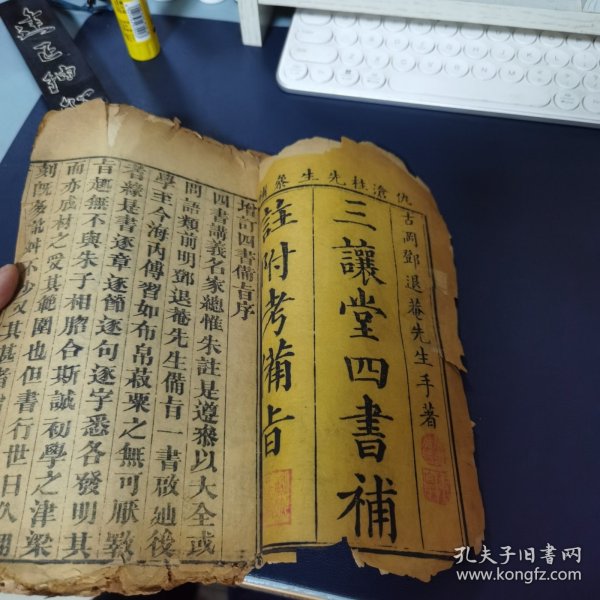 仇滄柱先生參補
古岡鄧退菴先生手著
三讓堂四書補
註附考備旨
增訂四書備旨序
四書講義名家總惟朱註是遵參以大全或
問語類前明鄧退菴先生備旨一書啟廸後
學至今海內傳習如布帛菽粟之無可厭斁
者緣是書逐章逐節逐句逐字悉各發明其
旨趣無不與朱子相脗合斯誠初學之津梁
而亦成材之受其範圍也但書行世日久翻
刻既
不少
又其甚者
孔夫子旧书网
www.kongfz.com